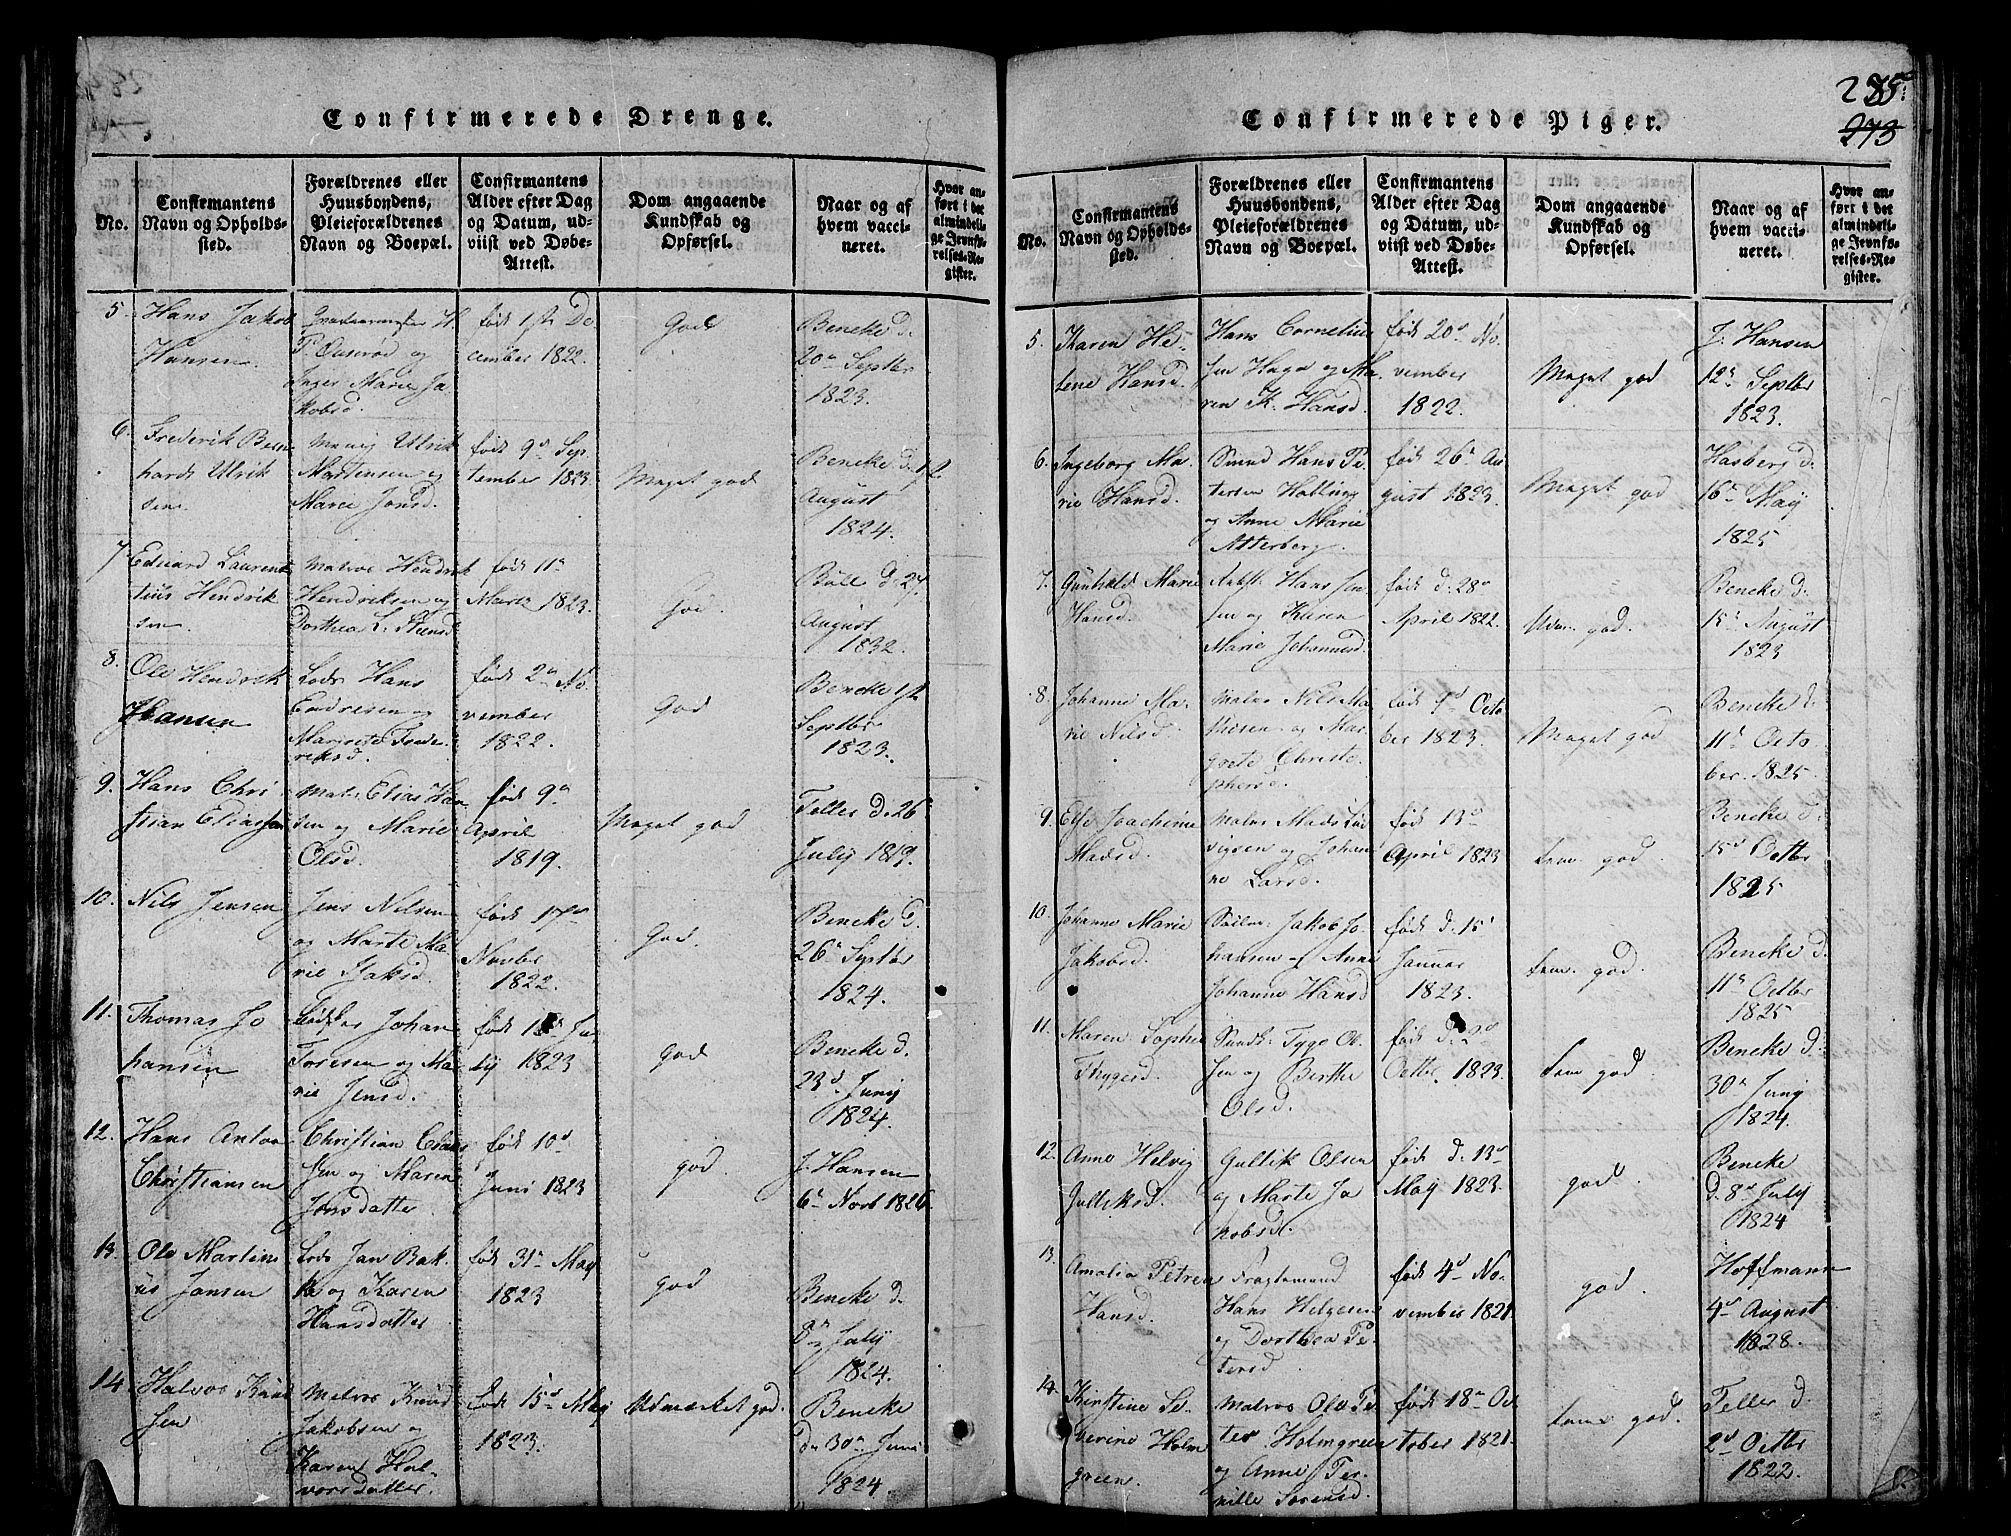 Confirmerede Drenge.
No.
Confirmantens
Navn og Opholds-
sted.
Forældrenes eller
Huusbondens,
Pleieforældrenes
Navn og Boepæl.
Confirmantens
Alder efter Dag
og Datum, ud-
viist ved Døbe-
Attest.
Dom angaaende
Kundskab og
Opførsel.
Naar og af
hvem vacci-
neret.
Hvor an-
ført i det
almindeli-
ge Jevnfø-
relses-Re-
gister.
5. Hans Jakob
Hansen
P. Omsrød og
Inger Marie Ja
kobsd.
født 1ste De
cember 1822.
God
Beneke d.
20de Septbr
1823.
6. Frederik Bern
hardt Ulrik
sen
Ulrik
Martensen og
Marie Jonsd.
født 9d Sep
tember 1823.
Meget god
Beneke d. 1st
August
1824.
7. Eduard Laurent
tius Hendrik
sen
Matros Hendrik
Hendriksen og
Dorthea L. Steensd
født 11d
Martz 1823.
God.
Büll d. 27.
August
1832.
8. Ole Hendrik
Hansen
Lods Hans
Endresen og
Margrete Frede
riksd.
født 2d No
vember
1822.
God
Beneke 1st
Septbr
1823.
9. Hans Chri
stian Eliassen
Matr. Elias Han
sen og Marie
Olsd.
født 9d
April
1819.
Meget god
Teller d. 26d
July 1819.
10. Nils Jensen
Jens Nilsen
og Marte Ma
rie Isaksd.
født 17d
Novbr
1822.
God.
Beneke d.
26d Septbr
1824.
11. Thomas Jo
hansen
Johan
Toresen og Ma
rie Jensd.
født Ju
ly 1823
god
Beneke d.
23d Juny
1824.
12. Hans Anton
Christiansen
Christian Claus
sen og Maren
Jonsdatter
født 10d
Juni 1823
god.
J. Hansen
6d Novb 1826.
13. Ole Martini
us Jansen
Lods Jan Bak
ke og Karen
Hansdatter
født 31d May
1823
god
Beneke d.
8d July
1824.
14. Halvor Knud
sen
Matros Knud
Jakobsen og
Karen Hal-
vorsdatter.
født 15d May
1823.
Udmærket god.
Beneke
d. 30d Juni
1824.
Confirmerede Piger.
285
273
No.
Confirmantens
Navn og Opholds-
sted.
Forældrenes eller
Huusbondens,
Pleieforældrenes
Navn og Boepæl.
Confirmantens
Alder efter Dag
og Datum, ud-
viist ved Døbe-
Attest.
Dom angaaende
Kundskab og
Opførsel.
Naar og af
hvem vacci-
neret.
Hvor an-
ført i det
almindeli-
ge Jevnfø-
relses-Re-
gister.
5. Karen He-
lene Hansd.
Hans Cornelius
sen Haga og Ma
ren K. Hansd.
født 20d No
vember
1822.
Meget god
J. Hansen
12d Septbr
1823.
6. Ingeborg Ma
rie Hansd.
Smed Hans Pe
tersen Holling
og Anne Marie
Atterberg.
født 26d Au
gust 1823.
Meget god
Hasberg d.
16d May
1825
7. Gunhild Marie
Hansd.
Arbst. Hans Jen
sen og Karen
Marie Johannesd.
født d. 28d
April 1822.
Udm. god.
Beneke d.
15d August
1823
8. Johanne Ma
rie Nilsd.
Matros Nils Ma
thesen og Mar
grete Christo
phersd.
født 9d Octo
ber 1823.
Meget god
Beneke d.
11d Octo
ber. 1825.
9. Else Joachime
Madsd.
Matros Mads Lud
vigsen og Johan
ne Larsd.
født 13d
April 1823
god.
Beneke d.
15d Octbr
1825
10. Johanne Marie
Jakobsd.
Jakob Jo
hansen og Anne
Johanne Hansd
født d. 15d
Januar
1823.
god.
Beneke d.
11d Octbr
1825
11. Maren Sophie
Thygesd.
Tyge Ol
sen og Berthe
Olsd.
født d. 2d
Octbr. 1823.
god.
Beneke d.
30d Juny
1824.
12. Anne Helvig
Gulliksd.
Gullik Olsen
og Marte Ja
kobsd.
født d. 13d
May 1823.
god.
Beneke
d. 8d July
1824
13. Amalia Petren
Hansd.
Fragtemand
Hans Helgesen
og Dorthea Pe
tersd.
født 4d No-
vember 1821.
god.
Hoffmann
4d August
1828.
14. Kirstine Se-
verine Holm
green.
Matros Ole Pe
ter Holmgreen
og Anne Per
nille Sørensd.
født 18d Oc
tober 1821.
god.
Teller d.
2d Octbr
1822.